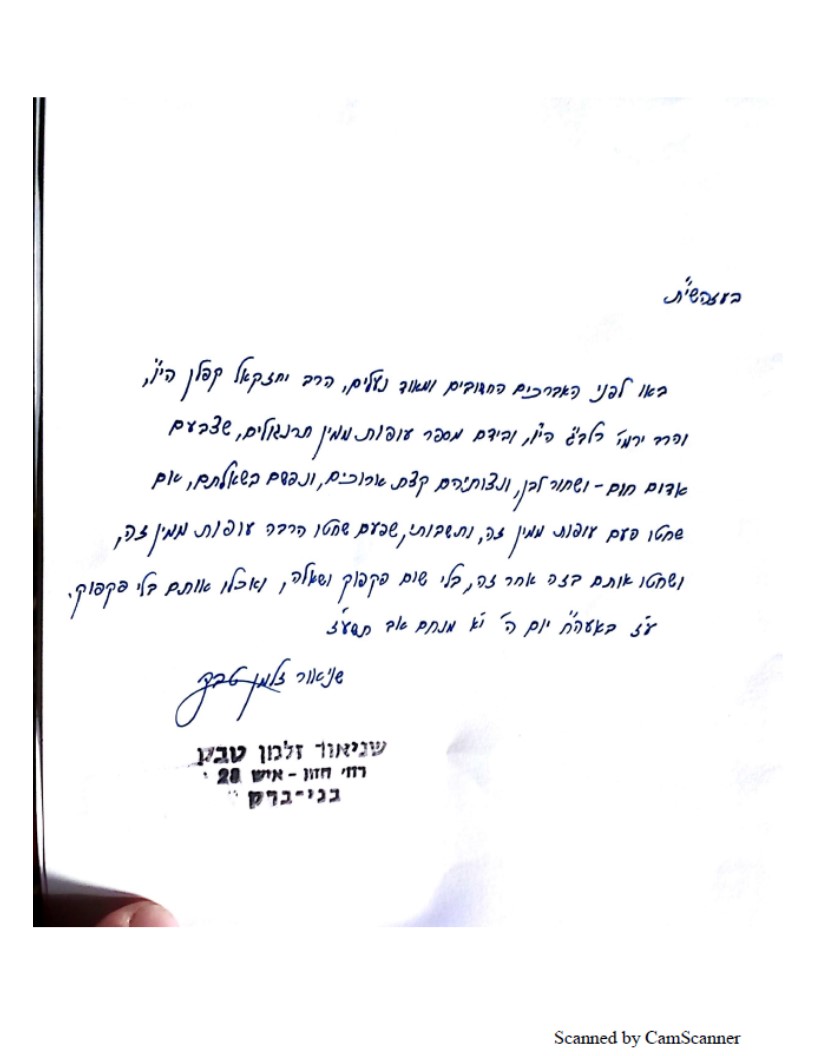 בעזהשי"ת
באו לפני האברכים החשובים ומאוד נעלים, הרב יחזקאל קפלן הי"ו,
והרב ירמי' הי"ו, ובידם מספר עופות ממין תרנגולים, שצבעם
אדום חום - ושחור לבן, ונצותיהם קצת ארוכים, ונפשם בשאלתם, אם
שחטו פעם עופות ממין זה, ותשבותי, שפעם שחטו הרבה עופות ממין זה,
ושחטו אותם בזה אחר זה, בלי שום פקפוק ושאלה, ואכלו אותם בלי פקפוק.
ע"ז באעה"ח יום ה' י"א מנחם אב תשע"ז
שניאור זלמן
שניאור זלמן טבק
רח' חזון - איש 28
בני-ברק
Scanned by CamScanner